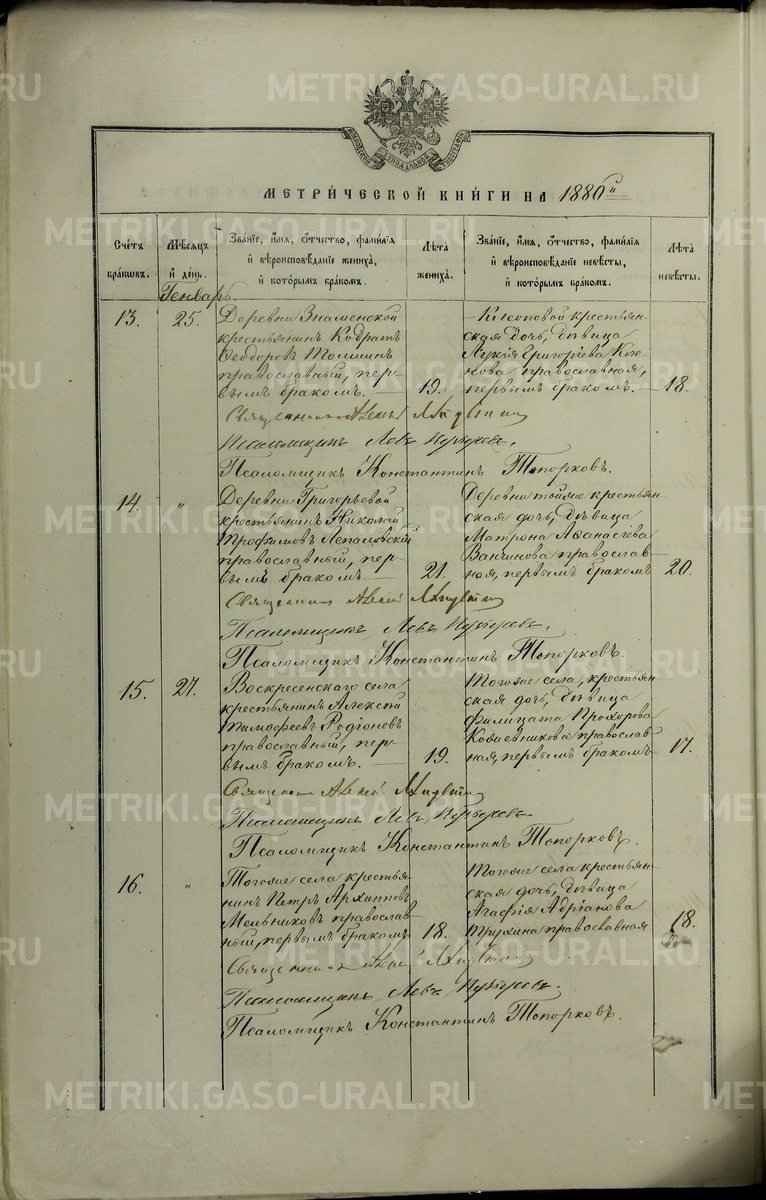 МОСКОВСКОЙ СѴНОДАЛЬНОЙ ТИПОГРАФІИ
МЕТРИ́ЧЕСКОЙ КНИ́ГИ НА 1886й
Сче́тъ бра́ковъ.
Мѣ́сяцъ и҆ де́нь.
Зва́нїе, и҆́мя, ѻ҆́тчество, фами́лїя и҆ вѣроисповѣ́данїе жениха̀, и҆ кото́рымъ бра́комъ.
Лѣ́та жениха̀.
Зва́нїе, и҆́мя, ѻ҆́тчество, фами́лїя и҆ вѣроисповѣ́данїе невѣ́сты, и҆ кото́рымъ бра́комъ.
Лѣ́та невѣ́сты.
Генварь.
13.
25.
Деревни Знаменской
крестьянинъ Кодратъ
Ѳеодоровъ
православный, пер-
вымъ бракомъ.
19.
Клеповой крестьян-
ская дочь, дѣвица
Лукія Григоріева
православная,
первымъ бракомъ.
18.
Священникъ
Псаломщикъ Левъ
Псаломщикъ Константинъ Топорковъ.
14.
"
Деревни Григорьевой
крестьянинъ Николай
Трофимовъ
православный, пер-
вымъ бракомъ
21.
Деревни тойже крестьян-
ская дочь, дѣвица
Матрона Аѳанасіева
Ванчинова православ-
ная, первымъ бракомъ
20.
Священникъ
Псаломщикъ Левъ
Псаломщикъ Константинъ Топорковъ.
15.
27.
Воскресенскаго села
крестьянинъ Алексѣй
Тимофеевъ Родіоновъ
православный, пер-
вымъ бракомъ.
19.
Тогоже села, крестьян-
ская дочь, дѣвица
Филицата Прохорова
Кожевникова православ-
ная, первымъ бракомъ
17.
Священникъ
Псаломщикъ Левъ
Псаломщикъ Константинъ Топорковъ.
16.
"
Тогоже села крестья-
нинъ Петръ Архиповъ
Мельниковъ православ-
ный, первымъ бракомъ
18.
Тогоже села крестьян-
ская дочь, дѣвица
Агафія Адріанова
Трухина православная
18.
Священникъ
Псаломщикъ Левъ
Псаломщикъ Константинъ Топорковъ.
METRIKI.GASO-URAL.RU